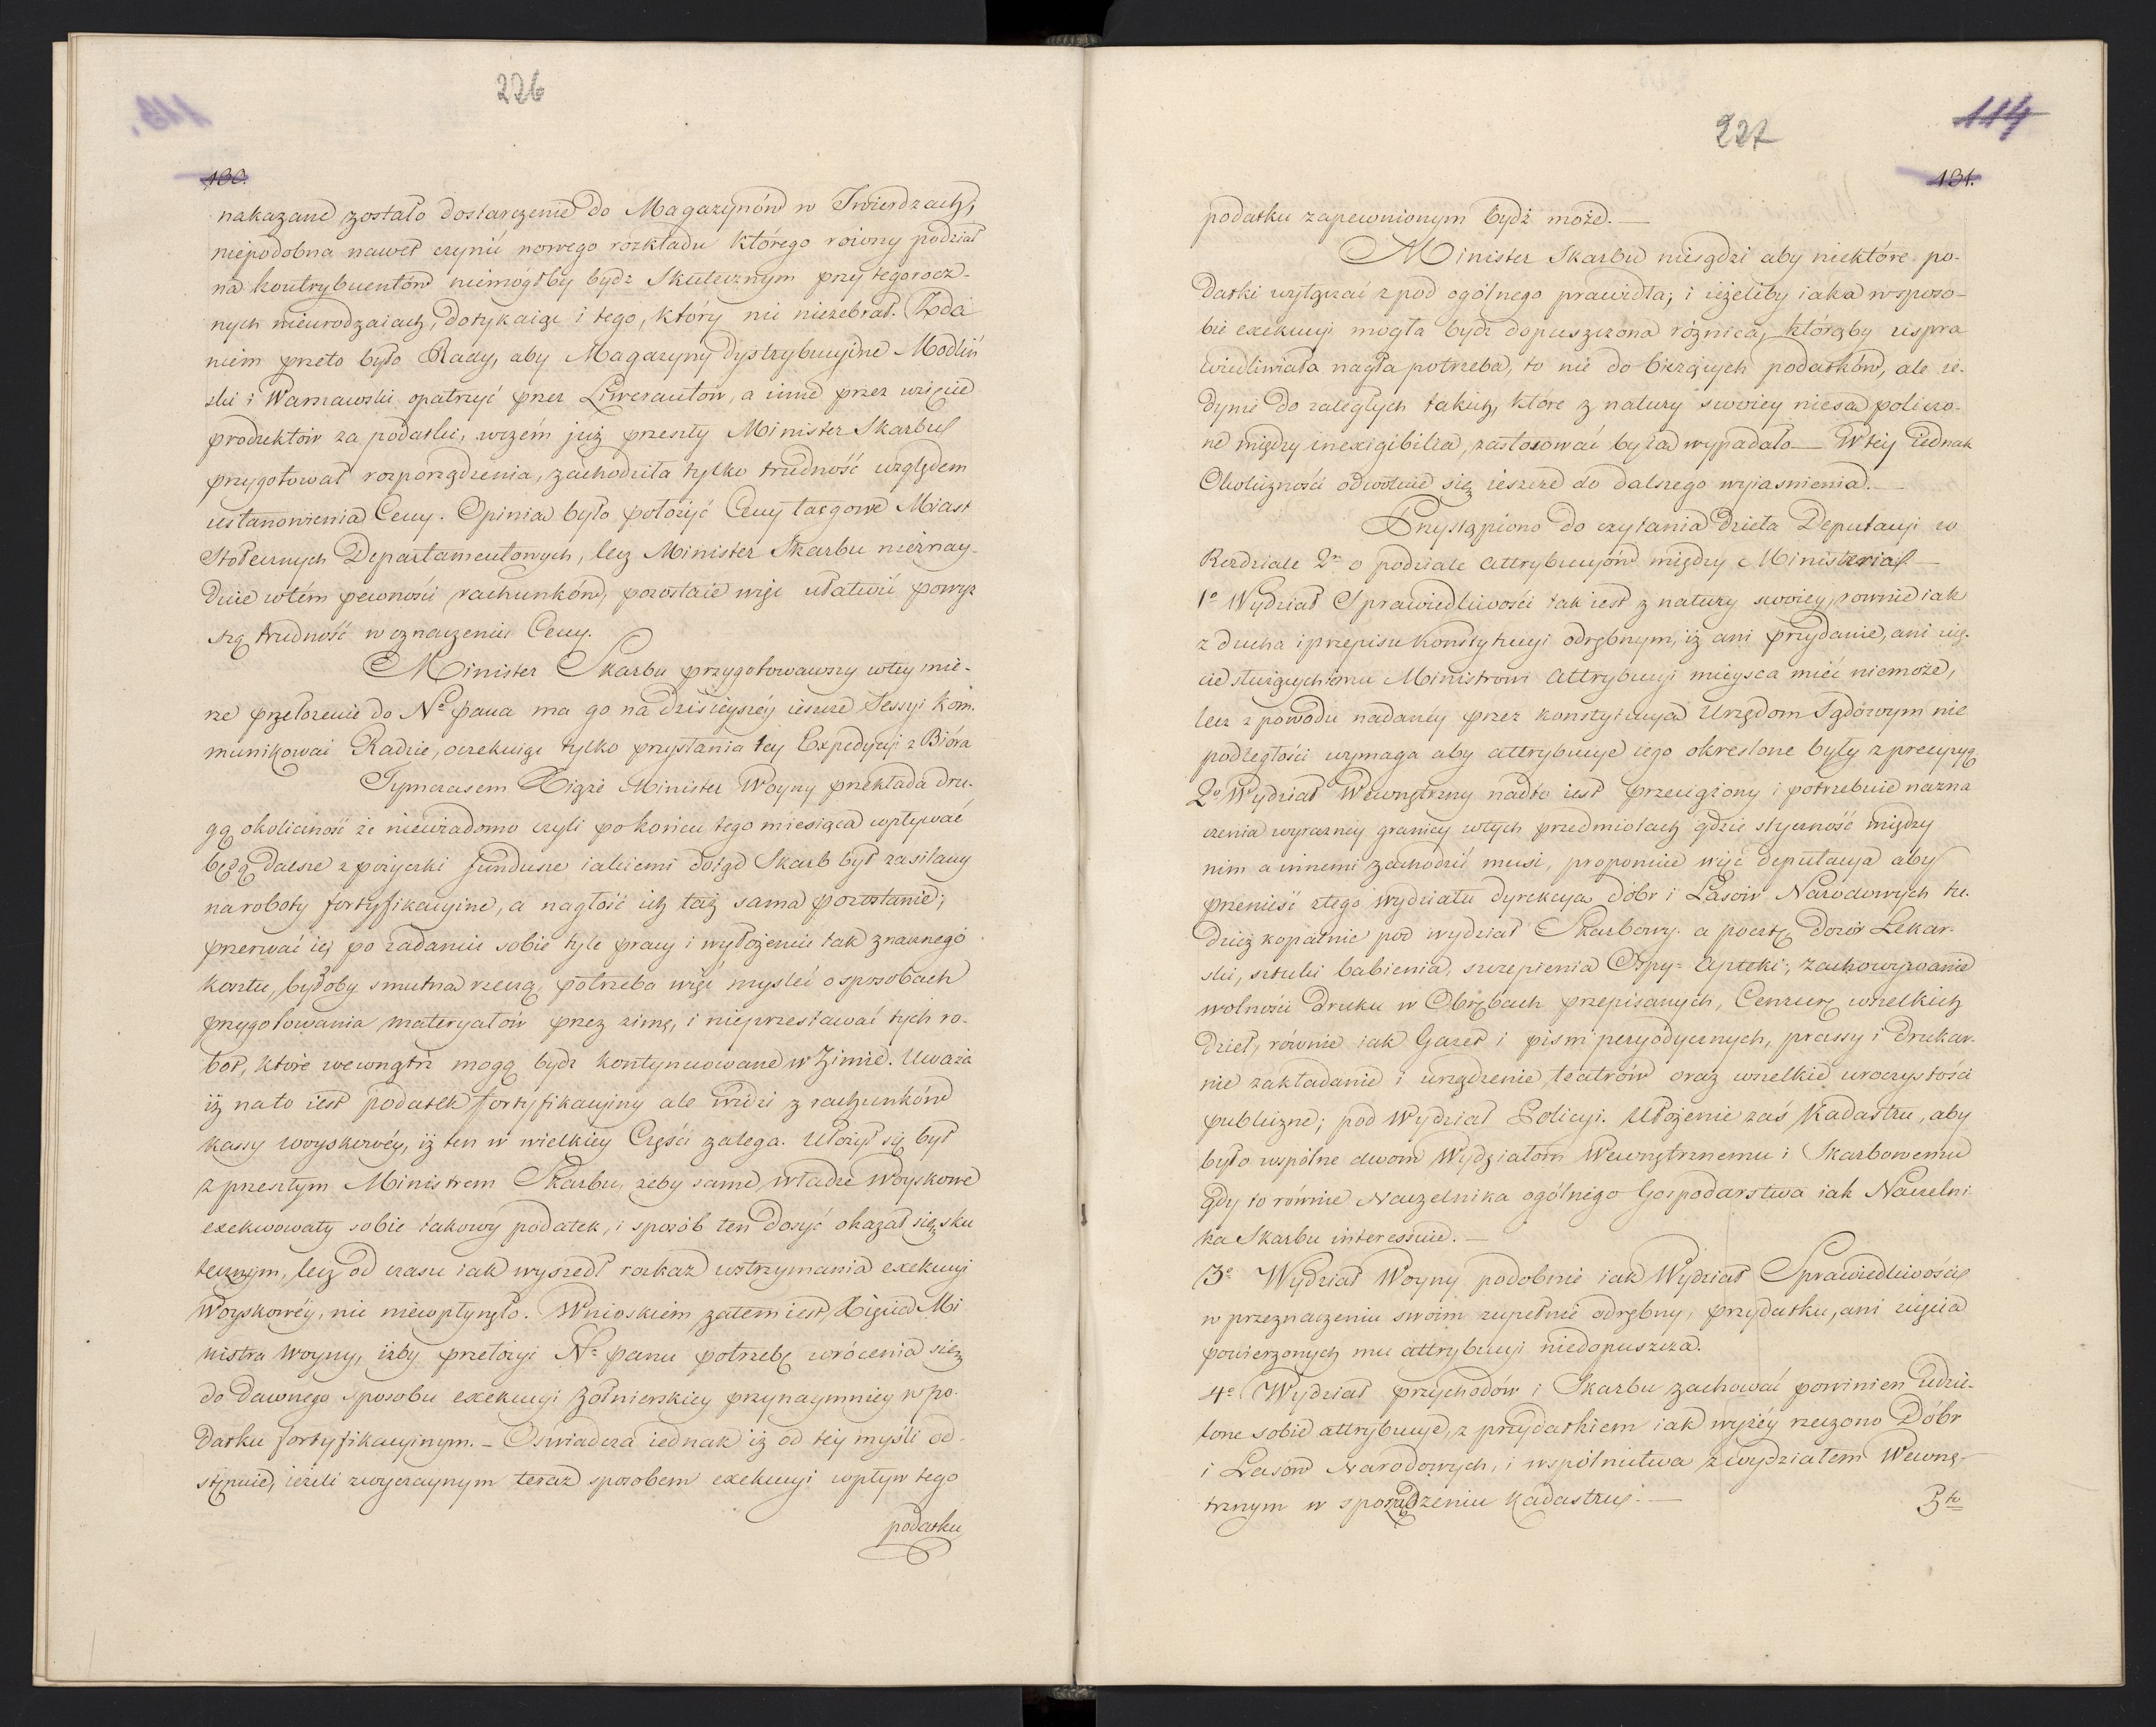 226
130.
nakazane zostało dostarczenie do Magazynów w Twierdzach,
niepodobna nawet czynić nowego rozkładu którego roiony podział
na kontrybuentów niemógłby bydz Skutecznym przy tegorocz-
nych nieurodzaiach, dotykaiąc i tego, który nic niezebrał. Żąda
niem przeto było Rady, aby Magazyny dystrybucyine Modliń
ski i Warszawski opatrzyć przez Liwerantów, a inne przez wzięcie
produktów za podatki, wczém już przeszły Minister Skarbu
przygotował rozporządzenia, zachodziła tylko trudność względem
ustanowienia Ceny. Opinia było położyć Ceny targowe Miast
Stołecznych Departamentowych, lecz Minister Skarbu nieznay-
duie wtém pewności rachunków, pozostaie więc ułatwić powyż
szą trudność w oznaczeniu Ceny.
Minister Skarbu przygotowawszy wtey mie-
rze przełożenie do Nº pana ma go na dzisieyszéy ieszcze Sessyi kom-
munikować Radzie, oczekuiąc tylko przysłania tey Expedycyi z Bióra
Tymczasem Xiąże Minister Woyny przekłada dru-
gą okoliczność że niewiadomo czyli po końcu tego miesiąca wpływać
będą dalsze z pożyczki fundusze iakiemi dotąd Skarb był zasilany
na roboty fortyfikacyine, a nagłość ich taż sama pozostanie;
przerwać ię po zadaniu sobie tyle pracy i wyłożeniu tak znacznego
kosztu, byłoby smutną rzeczą, potrzeba więc mysleć o sposobach
przygotowania materyałów przez zimę, i nieprzestawać tych ro-
bot, które wewnątrz mogą bydz kontynuowane w Zimie. Uważa
iż nato iest podatek fortyfikacyiny ale widzi z rachunków
kassy woyskowéy, iż ten w wielkiey Części zalega. Ułożył się był
z przeszłym Ministrem Skarbu, żeby same władze Woyskowe
exekwowały sobie takowy podatek, i sposób ten dosyć okazał się sku
tecznym, lecz od czasu iak wyszedł rozkaz wstrzymania exekucyi
Woyskowéy, nic niewpłynęło. Wnioskiem zatem iest Xięcia Mi
nistra Woyny, iżby przełożyć Nº panu potrzebę wrócenia się
do dawnego sposobu exekucyi żołnierskiey przynaymniey w po-
datku fortyfikacyinym. – Oświadcza iednak iż od téy myśli od-
stępuie, ieżeli zwyczaynym teraz sposobem exekucyi wpływ tego
podatku
227
114
131.
podatku zapewnionym bydź może. —
Minister Skarbu niesądzi aby niektóre po-
datki wyłączać z pod ogólnego prawidła; i ieżeliby iaka w sposo-
bie exekucyi mogła bydz dopuszczona różnica, którąby uspra
wiedliwiała nagła potrzeba, to nie do bieżących podatków, ale ie-
dynie do zaległych takich, które z natury swoiey niesą policzo-
ne między inexigibilia, zastosować by ią wypadało — W téy iednak
Okoliczności odwołuie się ieszcze do dalszego wyiasnienia. —
Przystąpiono do czytania dzieła Deputacyi w
Rozdziale 2m o podziale attrybucyów między Ministeria —
1º Wydział Sprawiedliwości tak iest z natury swoiey, rownie iak
z ducha i przepisu Konstytucyi odrębnym, iż ani przydanie, ani uię-
cie służących iemu Ministrowi attrybucyi mieysca mieć niemoże,
lecz z powodu nadaney przez konstytucyą Urzędom Sądowym nie
podległości wymaga aby attrybucye iego okreslone były z precyzyą
2º Wydział Wewnętrzny nadto iest przeciążony i potrzebuie nazna
czenia wyrazney granicy wtych przedmiotach gdzie styczność między
nim a innemi zachodzić musi, proponuie więc deputacya aby
przenieść ztego wydziału dyrekcya dóbr i Lasów Narodowych tu-
dzież kopalnie pod wydział Skarbowy a pocztę, dozór Lekar-
ski, sztuki babienia, szczepienia Ospy – Apteki, zachowywanie
wolności druku w Obrębach przepisanych, Cenzurę wszelkich
dzieł, równie iak Gazet i pism peryodycznych, prassy i drukar-
nie zakładanie i urządzenie teatrów oraz wszelkie uroczystości
publiczne; pod Wydział Policyi. Ułożenie zaś Kadastru, aby
było wspólne dwom Wydziałom Wewnętrznemu i Skarbowemu
gdy to równie Naczelnika ogólnego Gospodarstwa iak Naczelni-
ka Skarbu interessuie. —
3º Wydział Woyny podobnie iak Wydział Sprawiedliwości
w przeznaczeniu swoim zupełnie odrębny, przydatku, ani uięcia
powierzonych mu attrybucyi niedopuszcza.
4º Wydział przychodów i Skarbu zachować powinien udzie-
lone sobie attrybucye, z przydatkiem iak wyżéy rzeczono Dóbr
i Lasów Narodowych, i wspólnictwa z wydziałem Wewnę-
trznym w sporządzeniu Kadastru. —
5to